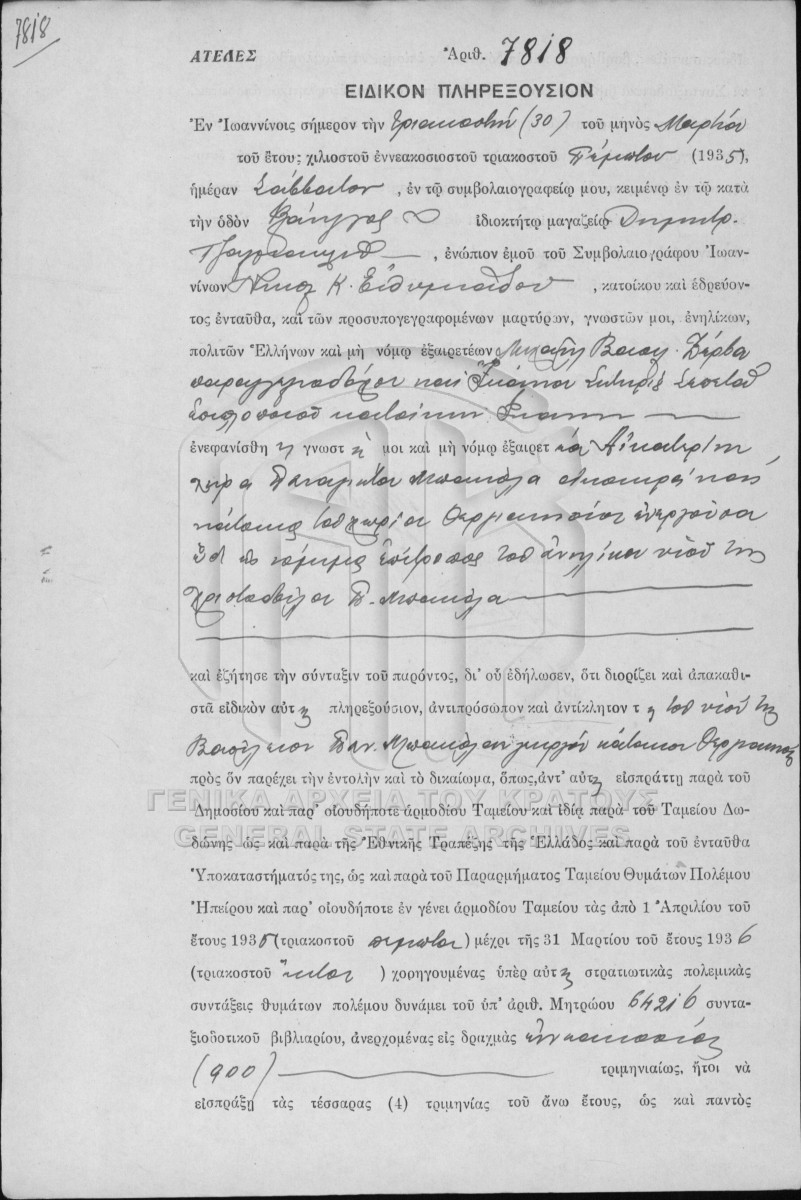 7818
ΑΤΕΛΕΣ Ἀριθ. 7818
ΕΙΔΙΚΟΝ ΠΛΗΡΕΞΟΥΣΙΟΝ
Ἐν Ἰωαννίνοις σήμερον τὴν τριακοστήν (30) τοῦ μηνὸς Μαρτίου
τοῦ ἔτους χιλιοστοῦ ἐννεακοσιοστοῦ τριακοστοῦ Πέμπτου (1935),
ἡμέραν Σάββατον, ἐν τῷ συμβολαιογραφείῳ μου, κειμένῳ ἐν τῷ κατὰ
τὴν ὁδὸν ἰδιοκτήτῳ μαγαζείῳ Δημητρ.
, ἐνώπιον ἐμοῦ τοῦ Συμβολαιογράφου Ἰωαν-
νίνων Νικολ Κ. Εὐθυμιάδου, κατοίκου καὶ ἑδρεύον-
τος ἐνταῦθα, καὶ τῶν προσυπογεγραφομένων μαρτύρων, γνωστῶν μοι, ἐνηλίκων,
πολιτῶν Ἑλλήνων καὶ μὴ νόμῳ ἐξαιρετέων Μιχαὴλ Βασιλ. Ζέρβα
καὶ
κατοίκων
ἐνεφανίσθη ἡ γνωστ ή μοι καὶ μὴ νόμῳ ἐξαιρετ έα Αἰκατερίνη
χήρα Παναγιώτου Μπακόλα οἰκοκυρά καὶ
κάτοικος τοῦ χωρίου ἐνεργοῦσα
ὡς νόμιμος ἐπίτροπος τοῦ ἀνηλίκου υἱοῦ της
Χριστοδούλου Π. Μπακόλα
καὶ ἐζήτησε τὴν σύνταξιν τοῦ παρόντος, δι' οὗ ἐδήλωσεν, ὅτι διορίζει καὶ ἀποκαθι-
στᾶ εἰδικὸν αὐτ ῆς πληρεξούσιον, ἀντιπρόσωπον καὶ ἀντίκλητον τ ὸν υἱόν της
Βασίλειον Παν. Μπακόλαν γεωργόν κάτοικον
πρὸς ὃν παρέχει τὴν ἐντολὴν καὶ τὸ δικαίωμα, ὅπως, ἀντ' αὐτ ῆς εἰσπράττῃ παρὰ τοῦ
Δημοσίου καὶ παρ' οἱουδήποτε ἁρμοδίου Ταμείου καὶ ἰδίᾳ παρὰ τοῦ Ταμείου Δω-
δώνης ὡς καὶ παρὰ τῆς Ἐθνικῆς Τραπέζης τῆς Ἑλλάδος καὶ παρὰ τοῦ ἐνταῦθα
Ὑποκαταστήματός της, ὡς καὶ παρὰ τοῦ Παραρτήματος Ταμείου Θυμάτων Πολέμου
Ἠπείρου καὶ παρ' οἱουδήποτε ἐν γένει ἁρμοδίου Ταμείου τὰς ἀπὸ 1 Ἀπριλίου τοῦ
ἔτους 1935 (τριακοστοῦ πέμπτου) μέχρι τῆς 31 Μαρτίου τοῦ ἔτους 1936
(τριακοστοῦ ἕκτου) χορηγουμένας ὑπὲρ αὐτ ῆς στρατιωτικὰς πολεμικὰς
συντάξεις θυμάτων πολέμου δυνάμει τοῦ ὑπ' ἀριθ. Μητρώου 64216 συντα-
ξιοδοτικοῦ βιβλιαρίου, ἀνερχομένας εἰς δραχμὰς ἐννεακοσίας
(900) τριμηνιαίως, ἤτοι νὰ
εἰσπράξῃ τὰς τέσσαρας (4) τριμηνίας τοῦ ἄνω ἔτους, ὡς καὶ παντὸς
ΓΕΝΙΚΑ ΑΡΧΕΙΑ ΤΟΥ ΚΡΑΤΟΥΣ
GENERAL STATE ARCHIVES